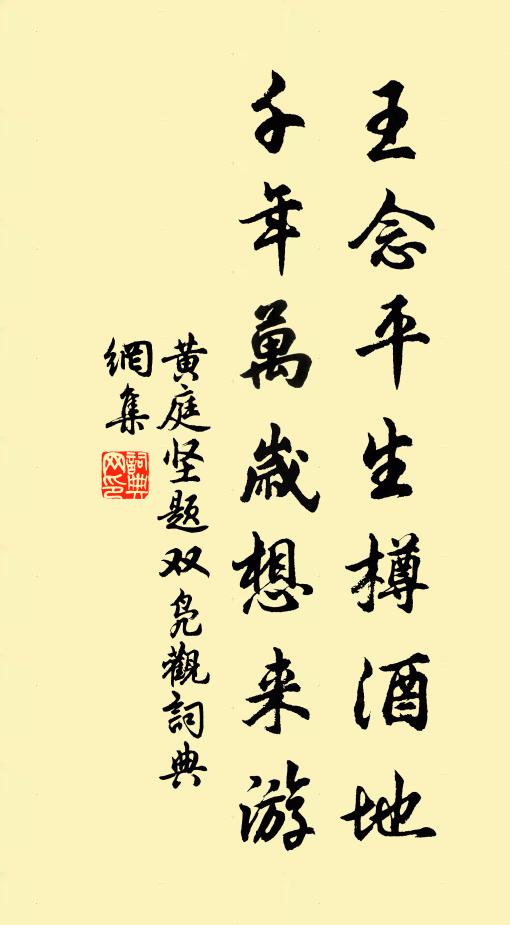 王念平生樽酒地
千年萬歲想来游
黄庭坚题双凫觀詞典
網集
詞典網印